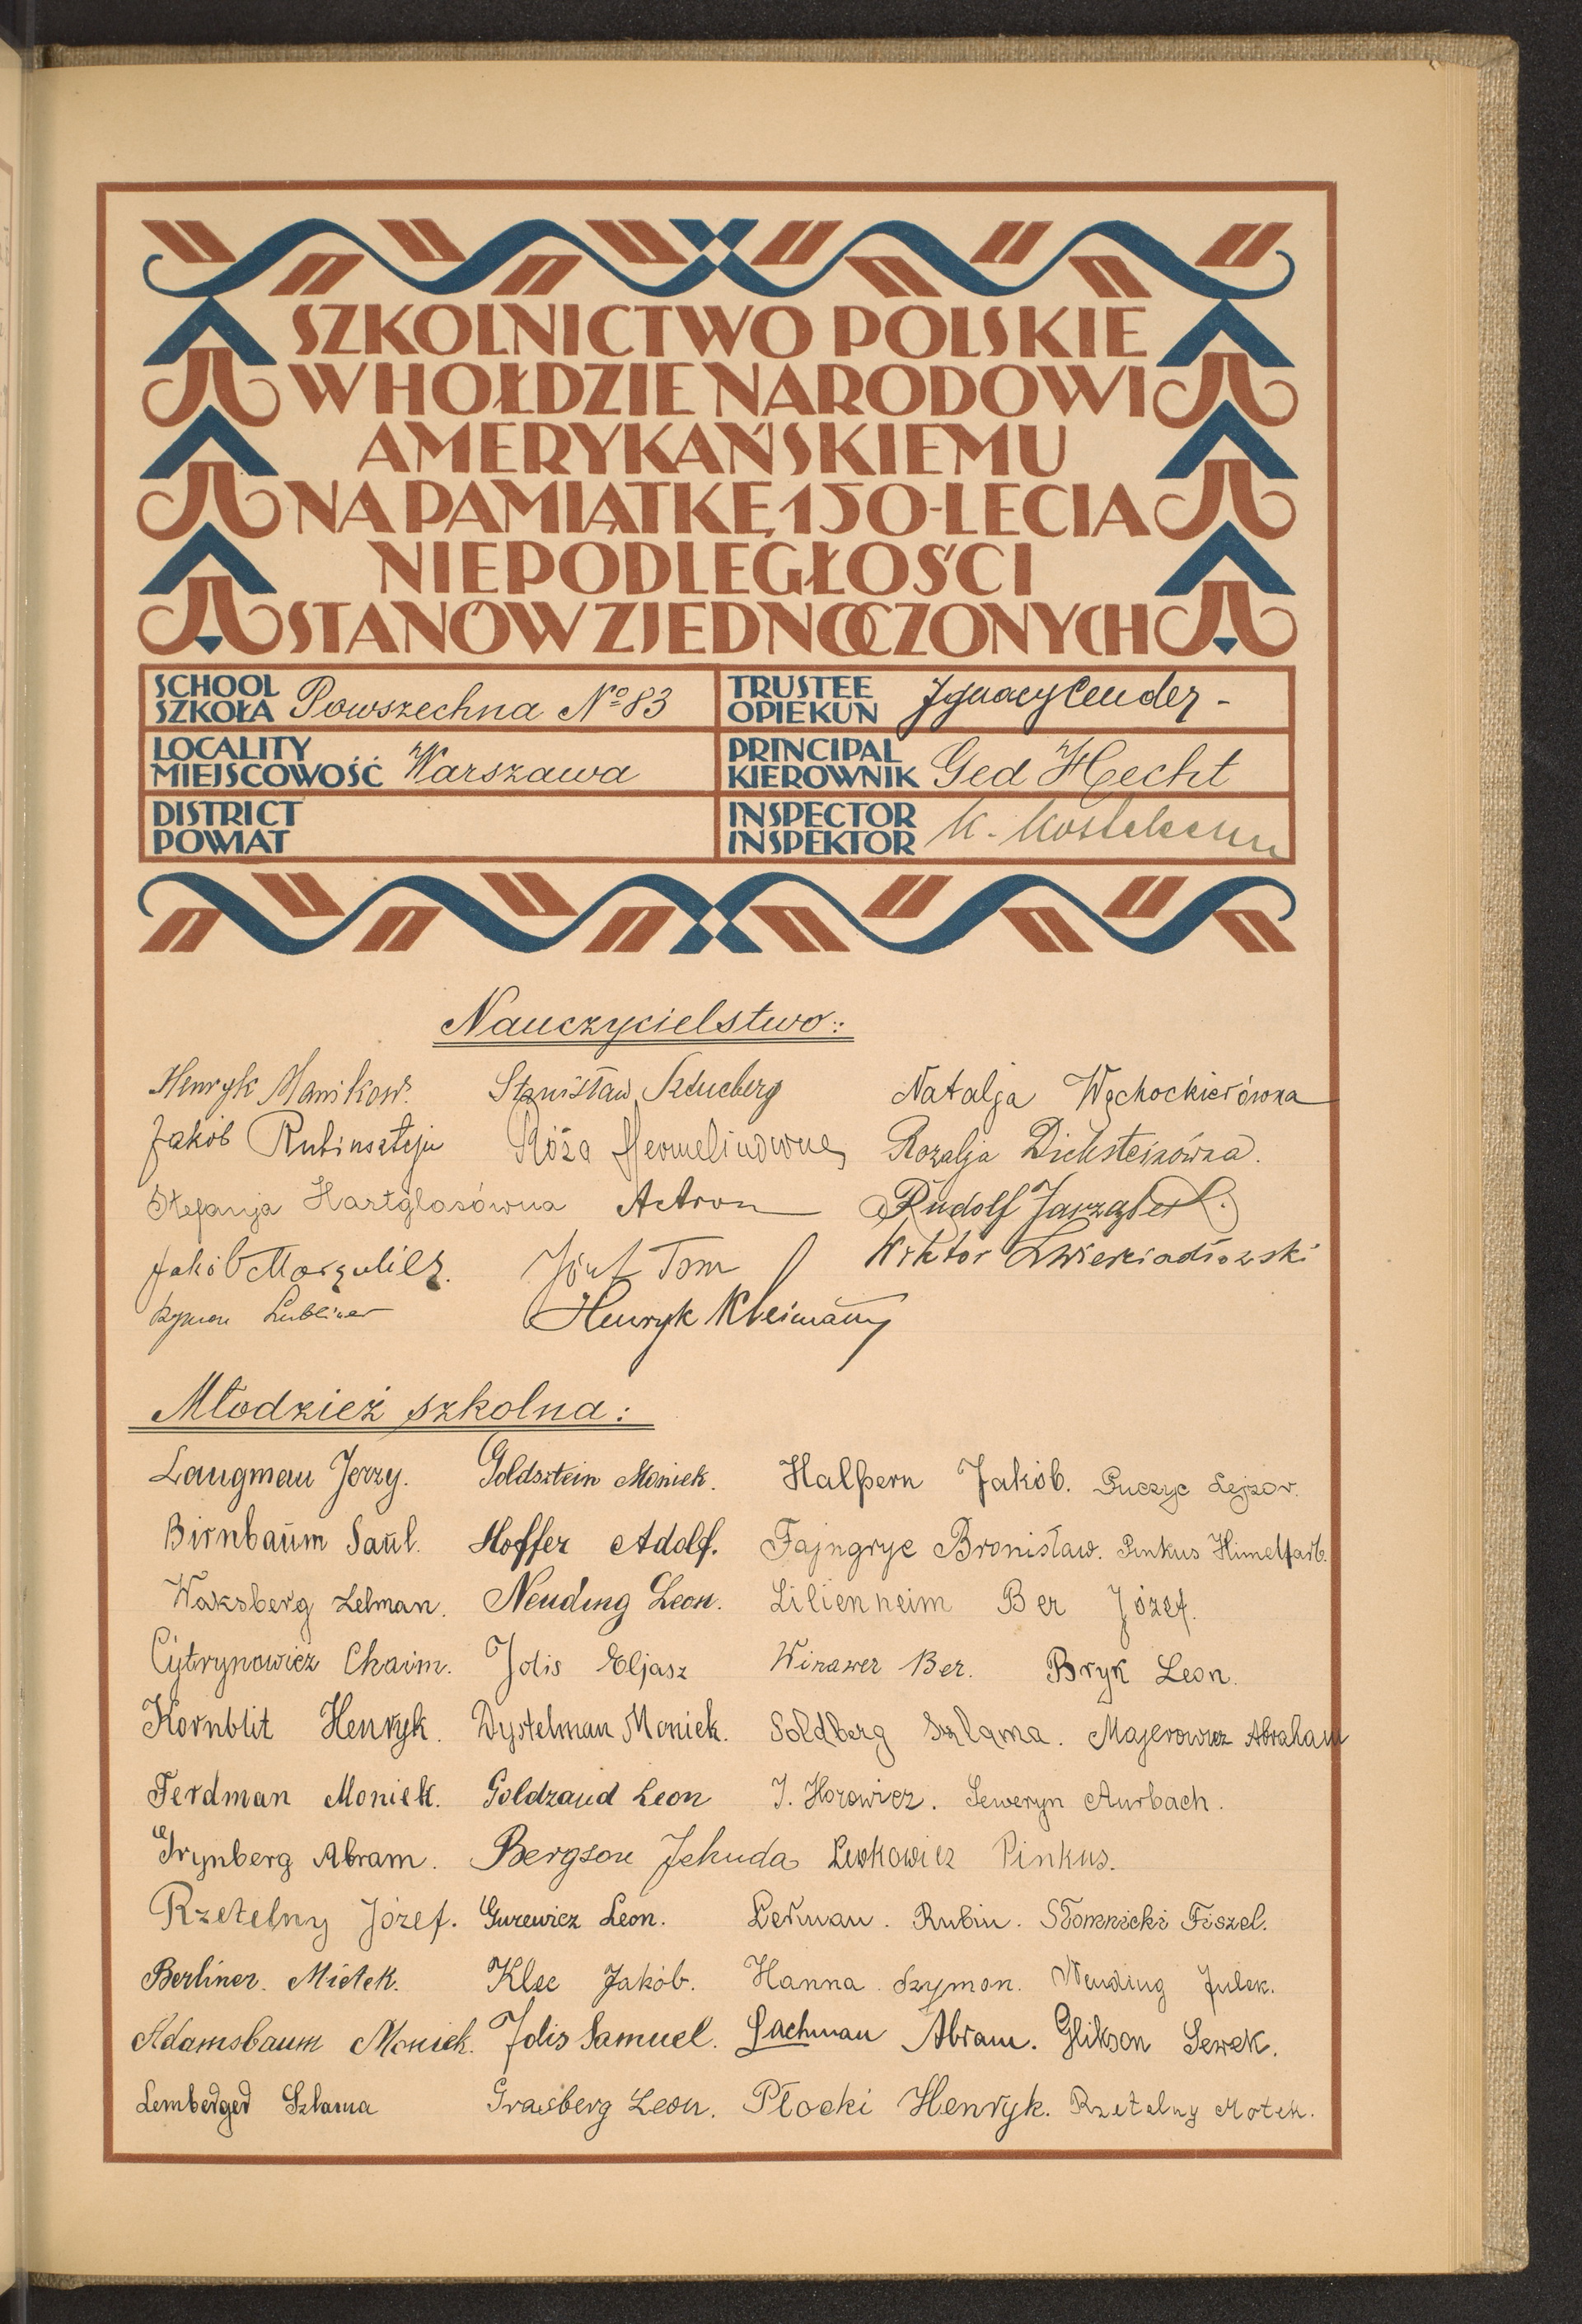 SZKOLNICTWO POLSKIE
W HOŁDZIE NARODOWI
AMERYKAŃSKIEMU
NA PAMIĄTKĘ 150-LECIA
NIEPODLEGŁOŚCI
STANÓW ZJEDNOCZONYCH
SCHOOL
SZKOŁA Powszechna № 83
TRUSTEE
OPIEKUN Ignacy Cender -
LOCALITY
MIEJSCOWOŚĆ Warszawa
PRINCIPAL
KIEROWNIK Ged Hecht
DISTRICT
POWIAT
INSPECTOR
INSPEKTOR K.
Nauczycielstwo:
Henryk Manikow. Stanisław Szlucberg Natalja Wąchockierówna
Jakób Rubinsztejn Róża Hermelinówna Rozalja Dicksteinówna.
Stefanja Hartglasówna Rudolf Jarząbek.
Jakób Margulies. Józef Tom Wiktor Zwierciadłowski
Szymon Lubliner Henryk Kleimann
Młodzież szkolna:
Laugman Jerzy. Goldsztein Moniek. Halpern Jakób. Puczyc Lejzor.
Birnbaum Saul. Hoffer Adolf. Fajngryc Bronisław. Pinkus Himelfarb.
Waksberg Zelman. Neuding Leon. Lilienheim Ber Józef.
Cytrynowicz Chaim. Jolis Eljasz Winawer Ber. Bryk Leon.
Kornblit Henryk. Dystelman Moniek. Goldberg Szlama. Majerowicz Abraham
Ferdman Moniek. Goldzand Leon I. Horowicz. Seweryn Aurbach.
Grynberg Abram. Bergson Jehuda Lewkowicz Pinkus.
Rzetelny Józef. Gurewicz Leon. Lerman. Rubin. Słomnicki Fiszel.
Berliner. Mietek. Klec Jakób. Hanna Szymon. Neuding Julek.
Adamsbaum Moniek. Jolis Samuel. Lachman Abram. Glikson Sewek.
Lemberger Szlama Grasberg Leon. Płocki Henryk. Rzetelny Motek.